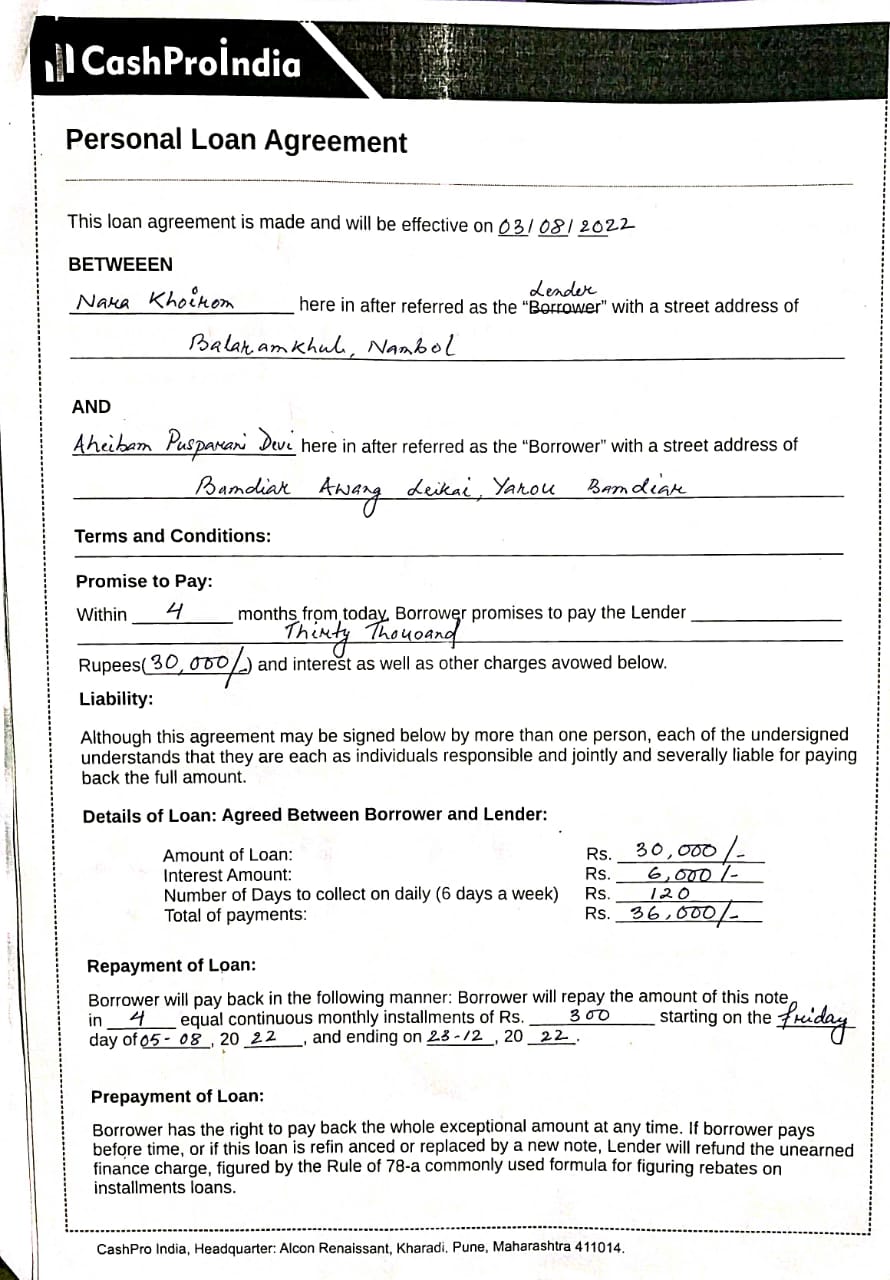 CashProIndia
Personal Loan Agreement
This loan agreement is made and will be effective on 03/08/2022
BETWEEEN
Lender
Nara Khoirom here in after referred as the “Borrower” with a street address of
Balaramkhul, Nambol
AND
Aheibam Pusparani Devi here in after referred as the “Borrower” with a street address of
Bamdiar Awang Leikai, Yarou Bamdiar
Terms and Conditions:
Promise to Pay:
Within 4 months from today, Borrower promises to pay the Lender
Thirty Thousand
Rupees(30,000/-) and interest as well as other charges avowed below.
Liability:
Although this agreement may be signed below by more than one person, each of the undersigned
understands that they are each as individuals responsible and jointly and severally liable for paying
back the full amount.
Details of Loan: Agreed Between Borrower and Lender:
Amount of Loan: Rs. 30,000/-
Interest Amount: Rs. 6,000/-
Number of Days to collect on daily (6 days a week) Rs. 120
Total of payments: Rs. 36,000/-
Repayment of Loan:
Borrower will pay back in the following manner: Borrower will repay the amount of this note
in 4 equal continuous monthly installments of Rs. 300 starting on the Friday
day of 05-08, 20 22, and ending on 23-12, 20 22.
Prepayment of Loan:
Borrower has the right to pay back the whole exceptional amount at any time. If borrower pays
before time, or if this loan is refin anced or replaced by a new note, Lender will refund the unearned
finance charge, figured by the Rule of 78-a commonly used formula for figuring rebates on
installments loans.
CashPro India, Headquarter: Alcon Renaissant, Kharadi, Pune, Maharashtra 411014.